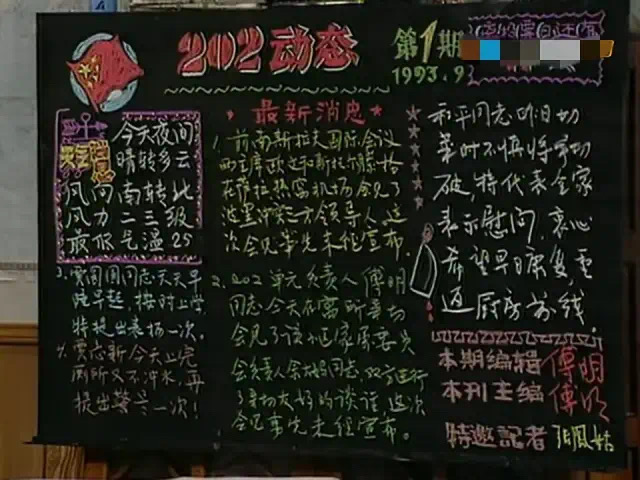 202动态
第1期
1993.9
最新消息
今天夜间
晴转多云
风向南转北
风力二三级
最低气温25
1.前南斯拉夫国际会议
两主席欧文和斯托尔滕柏格
在萨拉热窝机场会见了
波黑冲突三方领导人,这
次会见事先未经宣布.
2.202单元负责人傅明
同志今天在寓所亲切
会见了该地区居委会
负责人余大妈同志,双方进行
了亲切友好的谈话.这次
会见事先未经宣布.
3.贾圆圆同志天天早
晚早起,按时上学,
特提出表扬一次.
4.贾志新今天上完
厕所又不冲水,再
提出警告一次!
和平同志昨日切
菜时不慎将手切
破,特代表全家
表示慰问,衷心
希望早日康复,重
返厨房前线.
本期编辑 傅明
本刊主编 傅明
特邀記者 张凤姑